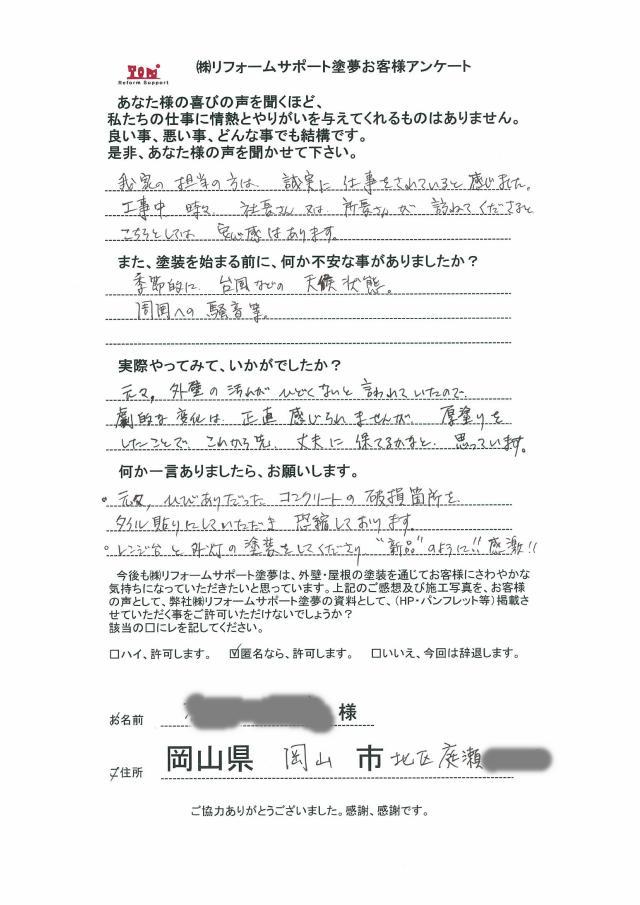 TOM
Reform Support
㈱リフォームサポート塗夢お客様アンケート
あなた様の喜びの声を聞くほど、
私たちの仕事に情熱とやりがいを与えてくれるものはありません。
良い事、悪い事、どんな事でも結構です。
是非、あなた様の声を聞かせて下さい。
我家の担当の方は、誠実に仕事をされていると感じました。
工事中 時々、社長さん又は所長さんが訪ねてくださると
こちらとしては、安心感はあります。
また、塗装を始まる前に、何か不安な事がありましたか？
季節的に、台風などの天候状態。
周囲への騒音等。
実際やってみて、いかがでしたか？
元々、外壁の汚れがひどくないと言われていたので、
劇的な変化は、正直感じられませんが、厚塗りを
したことで、これから先、丈夫に保てるかなと、思っています。
何か一言ありましたら、お願いします。
。元々、ひびありだった コンクリートの破損箇所を、
タイル貼りにしていただき 恐縮しております。
。レンジ台と外灯の塗装をしてくださり "新品"のように!! 感激!!
今後も㈱リフォームサポート塗夢は、外壁・屋根の塗装を通じてお客様にさわやかな
気持ちになっていただきたいと思っています。上記のご感想及び施工写真を、お客様
の声として、弊社㈱リフォームサポート塗夢の資料として、（HP・パンフレット等）掲載さ
せていただく事をご許可いただけないでしょうか？
該当の□にレを記してください。
□ハイ、許可します。 ☑匿名なら、許可します。 □いいえ、今回は辞退します。
お名前 様
ご住所 岡山県 岡山 市 北区庭瀬
ご協力ありがとうございました。感謝、感謝です。